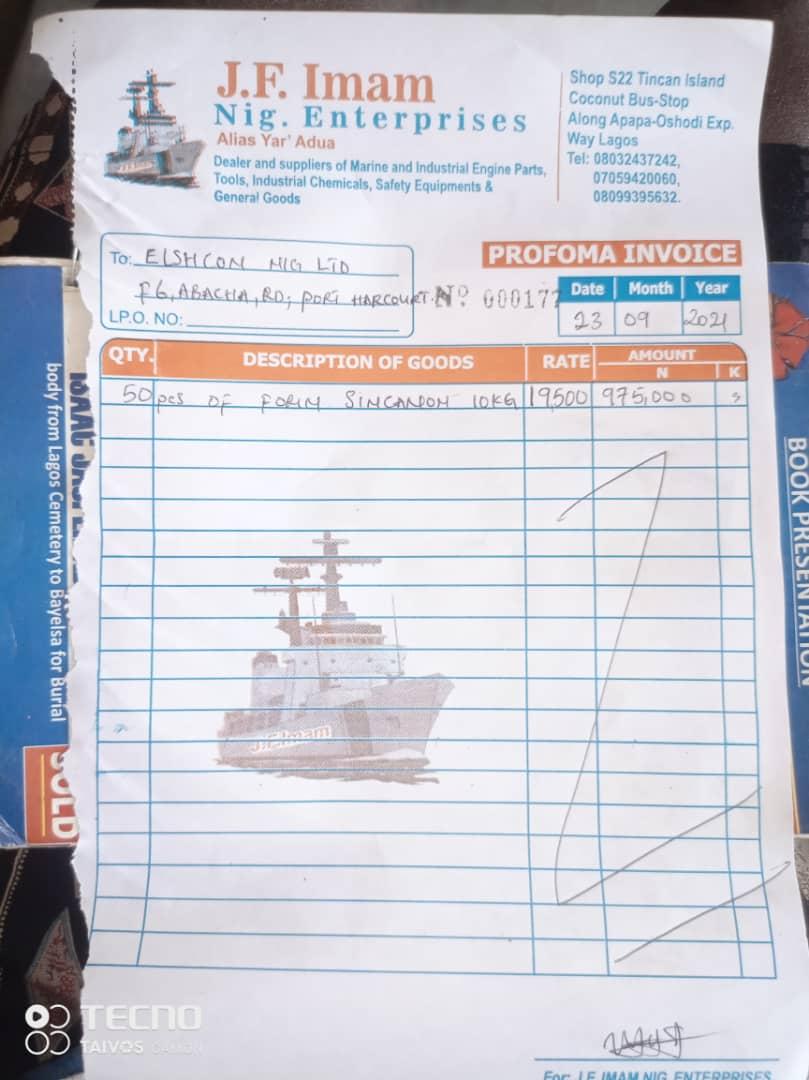 J.F. Imam
Nig. Enterprises
Alias Yar' Adua
Dealer and suppliers of Marine and Industrial Engine Parts,
Tools, Industrial Chemicals, Safety Equipments &
General Goods
Shop S22 Tincan Island
Coconut Bus-Stop
Along Apapa-Oshodi Exp.
Way Lagos
Tel: 08032437242,
07059420060,
08099395632.
To: ELSHCON NIG LTD
F6, ABACHA, RD; PORT HARCOURT.
L.P.O. NO:
PROFOMA INVOICE
Nº 000177
Date Month Year
23 09 2021
QTY. DESCRIPTION OF GOODS RATE AMOUNT
N K
50 pcs OF 10KG 19,500 975,000
J.F. Imam
For: J.F. IMAM NIG. ENTERPRISES
body from Lagos Cemetery to Bayelsa for Burial
SOLD
BOOK PRESENTATION
TECNO
TAIVOS CAMON